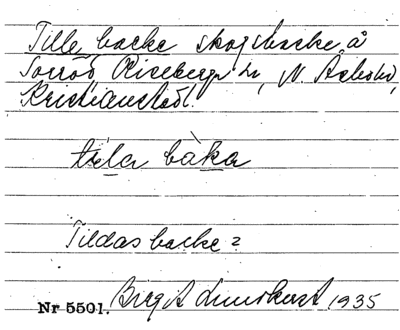 Tille backe skogsbacke å
Sorröd, Riseberga sn, N. Åsbo hd,
Kristianstad l.
tila bàka
Tildas backe?
Nr 5501. Birgit Lundkvist 1935